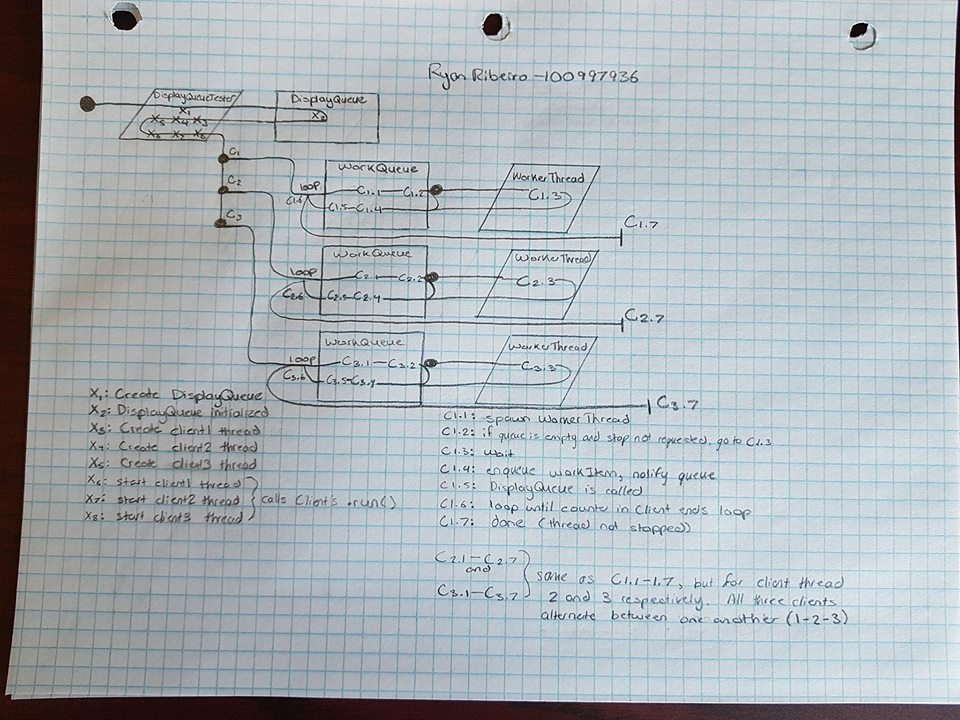 Ryan Ribeiro - 100997936
DisplayQueueTester
X1
X5 X4 X3
X6 X7 X8
DisplayQueue
X2
C1
C2
C3
WorkQueue
loop
C1.1 C1.2
C1.6
C1.5 C1.4
WorkerThread
C1.3
C1.7
WorkQueue
loop
C2.1 C2.2
C2.6
C2.5 C2.4
WorkerThread
C2.3
C2.7
WorkQueue
loop
C3.1 C3.2
C3.6
C3.5 C3.4
WorkerThread
C3.3
C3.7
X1: Create DisplayQueue
X2: DisplayQueue initialized
X3: Create client1 thread
X4: Create client2 thread
X5: Create client3 thread
X6: start client1 thread
X7: start client2 thread
X8: start client3 thread
calls Client's .run()
C1.1: spawn WorkerThread
C1.2: if queue is empty and stop not requested, go to C1.3
C1.3: wait
C1.4: enqueue workItem, notify queue
C1.5: DisplayQueue is called
C1.6: loop until counter in Client ends loop
C1.7: done (thread not stopped)
C2.1-C2.7
and
C3.1-C3.7
same as C1.1-1.7, but for client thread
2 and 3 respectively. All three clients
alternate between one another (1-2-3)